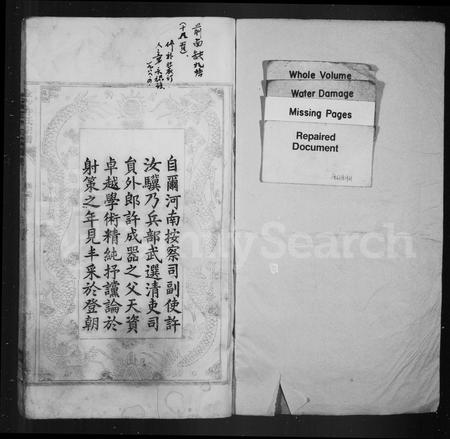 前面缺九塔
(十九頁)
自爾河南按察司副使許
汝驥乃兵部武選清吏司
貟外郎許成器之父天資
卓越學術精純抒讜論於
射策之年見丰采於登朝
Whole Volume
Water Damage
Missing Pages
Repaired
Document
Search